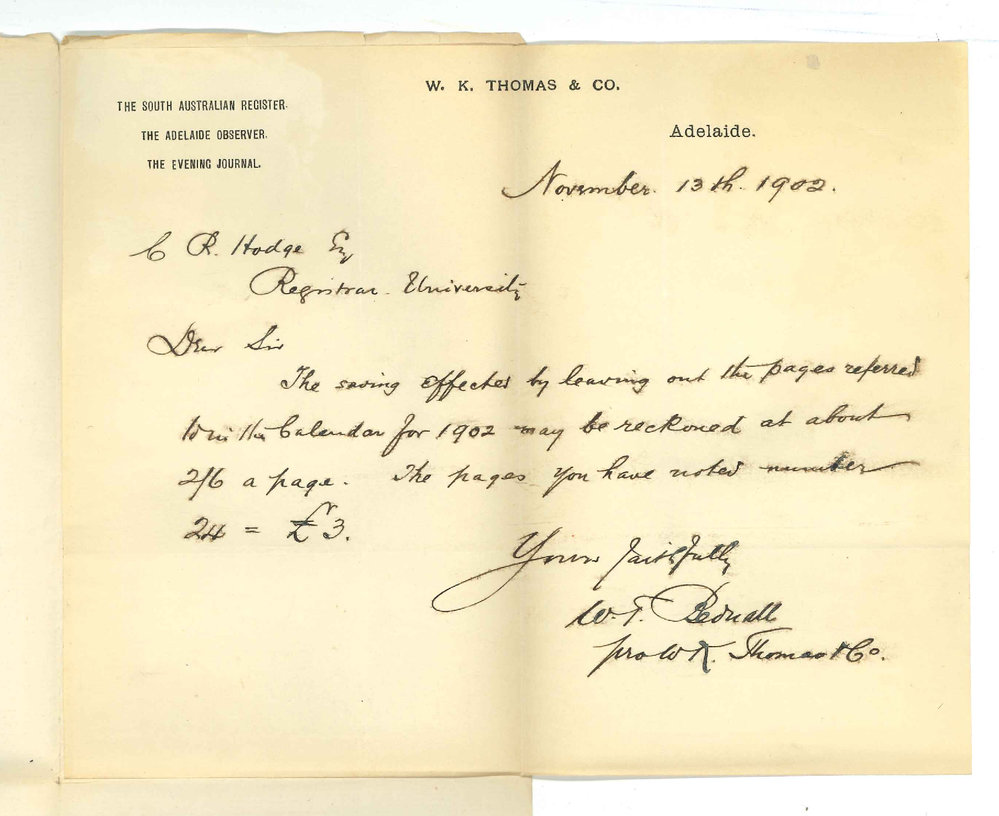 W. K. THOMAS & CO.
THE SOUTH AUSTRALIAN REGISTER.
THE ADELAIDE OBSERVER.
THE EVENING JOURNAL.
Adelaide.
November. 13th. 1902.
C R. Hodge Esq
Registrar. University
Dear Sir
The saving effected by leaving out the pages referred
to in the Calendar for 1902 may be reckoned at about
2/6 a page. The pages you have noted number
24 = £3.
Yours faithfully
W. T. Bednall
pro W K. Thomas & Co.